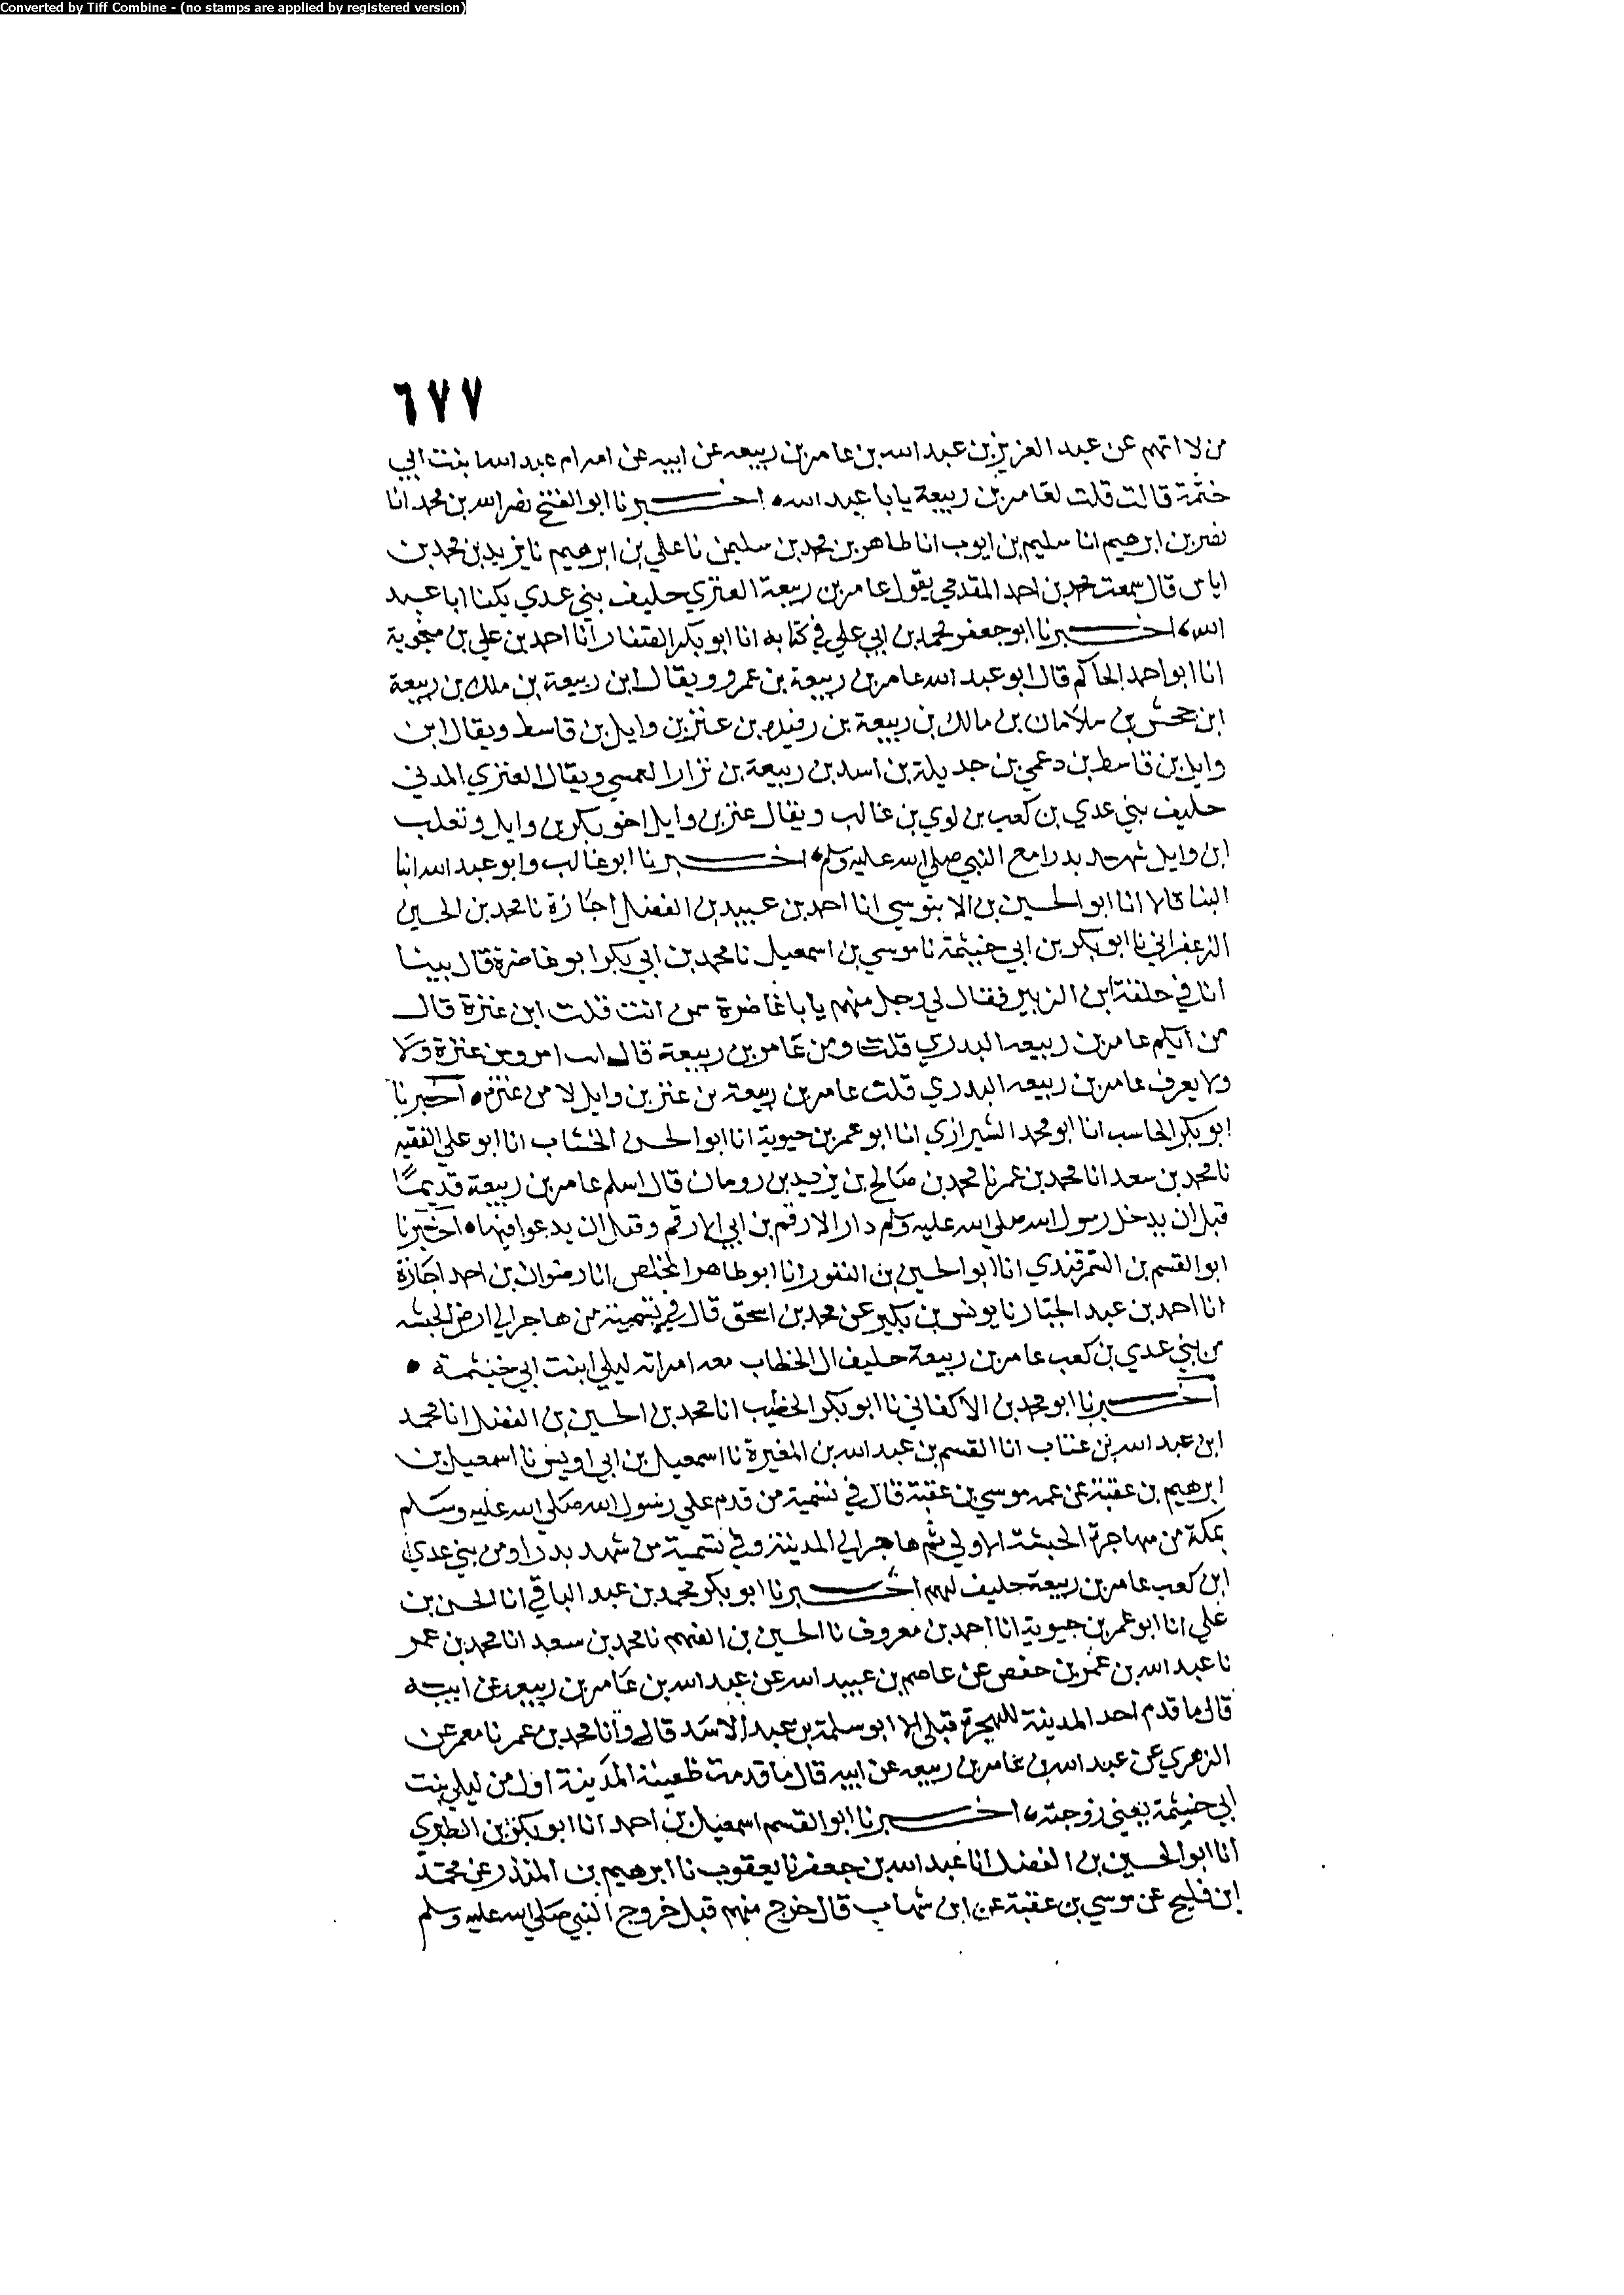 Converted by Tiff Combine - (no stamps are applied by registered version)
٦٧٧
من لا اتهم عن عبد العزيز بن عبد الله بن عامر بن ربيعه عن ابيه عن امه ام عبد الله ابنت ابي
خثمة قالت قلت لعامر بن ربيعة يابا عبد الله اخبرنا ابو الفتح نصر الله بن محمد انا
نصر بن ابرهيم انا سليم بن ايوب انا طاهر بن محمد بن سليمن نا علي بن ابرهيم نا يزيد بن محمد بن
اياس قال سمعت محمد بن احمد المقدمي يقول عامر بن ربيعة العنزي حليف بني عدي يكنا ابا عبد
الله اخبرنا ابو جعفر محمد بن ابي علي في كتابه انا ابو بكر الصفار انا احمد بن علي بن منجوية
انا ابو احمد الحاكم قال ابو عبد الله عامر بن ربيعة بن عمرو ويقال ابن ربيعة بن ملك بن ربيعة
ابن جحش بن سلامان بن مالك بن ربيعة بن رفيده بن عنز بن وايل بن قاسط ويقال ابن
وايل بن قاسط بن دعمي بن جديلة بن اسد بن ربيعة بن نزار العمسي ويقال العنزي المدني
حليف بني عدي بن كعب بن لوي بن غالب ويقال عنز بن وايل اخو بكر بن وايل وتغلب
ابن وايل شهد بدرا مع النبي صلى الله عليه وسلم اخبرنا ابو غالب وابو عبد الله ابنا
البنا قالا انا ابو الحسين بن الابنوسي انا احمد بن عبيد بن الفضل اجازة نا محمد بن الحسين
الزعفراني نا ابو بكر بن ابي خيثمة نا موسي بن اسمعيل نا محمد بن ابي بكر ابو غاضرة قال بينا
انا في حلقة ابن الزبير فقال لي رجل منهم يابا غاضرة ممن انت قلت ابن عنزة قال
من ايكم عامر بن ربيعه البدري قلت ومن عامر بن ربيعة قال امرو من عنزة ولا
ولا يعرف عامر بن ربيعه البدري قلت عامر بن ربيعة بن عنز بن وايل لا من عنزه اخبرنا
ابو بكر الحاسب انا ابو محمد الشيرازي انا ابو عمر بن حيوية انا ابو الحسن الخشاب انا ابو علي الفقيه
نا محمد بن سعد انا محمد بن عمر نا محمد بن صالح بن يزيد بن رومان قال اسلم عامر بن ربيعة قديما
قبل ان يدخل رسول الله صلى الله عليه وسلم دار الارقم بن ابي الارقم وقبل ان يدعوا فيها اخبرنا
ابو القسم بن السمرقندي انا ابو الحسين بن النقور انا ابو طاهر المخلص انا رضوان بن احمد اجازة
انا احمد بن عبد الجبار نا يونس بن بكير عن محمد بن اسحق قال في تسمية من هاجر الي ارض الحبشه
من بني عدي بن كعب عامر بن ربيعة حليف ال الخطاب معه امراته ليلي ابنت ابي خيثمة
اخبرنا ابو محمد بن الاكفاني نا ابو بكر الخطيب انا محمد بن الحسين بن الفضل انا محمد
ابن عبد الله بن عتاب انا القسم بن عبد الله بن المغيرة نا اسمعيل بن ابي اويس نا اسمعيل بن
ابرهيم بن عقبة عن عمه موسي بن عقبة قال في تسمية من قدم علي رسول الله صلى الله عليه وسلم
بمكة من مهاجرة الحبشة الاولي ثم هاجر الي المدينة وفي تسمية من شهد بدرا ومن بني عدي
ابن كعب عامر بن ربيعة حليف لهم اخبرنا ابو بكر محمد بن عبد الباقي انا الحسن بن
علي انا ابو عمر بن حيوية انا احمد بن معروف نا الحسين بن الفهم نا محمد بن سعد انا محمد بن عمر
نا عبد الله بن عمر بن حفص عن عاصم بن عبيد الله عن عبد الله بن عامر بن ربيعه عن ابيه
قال ما قدم احد المدينة للهجرة قبلي الا ابو سلمة بن عبد الاسد قال وانا محمد بن عمر نا معمر عن
الزهري عن عبد الله بن عامر بن ربيعه عن ابيه قال ما قدمت ظعينة المدينة اول من ليلي بنت
ابي خيثمة يعني زوجته اخبرنا ابو القسم اسمعيل بن احمد انا ابو بكر بن الطبري
انا ابو الحسين بن الفضل انا عبد الله بن جعفر نا يعقوب نا ابرهيم بن المنذر عن محمد
ابن فليح عن موسي بن عقبة عن ابن شهاب قال خرج منهم قبل خروج النبي صلى الله عليه وسلم